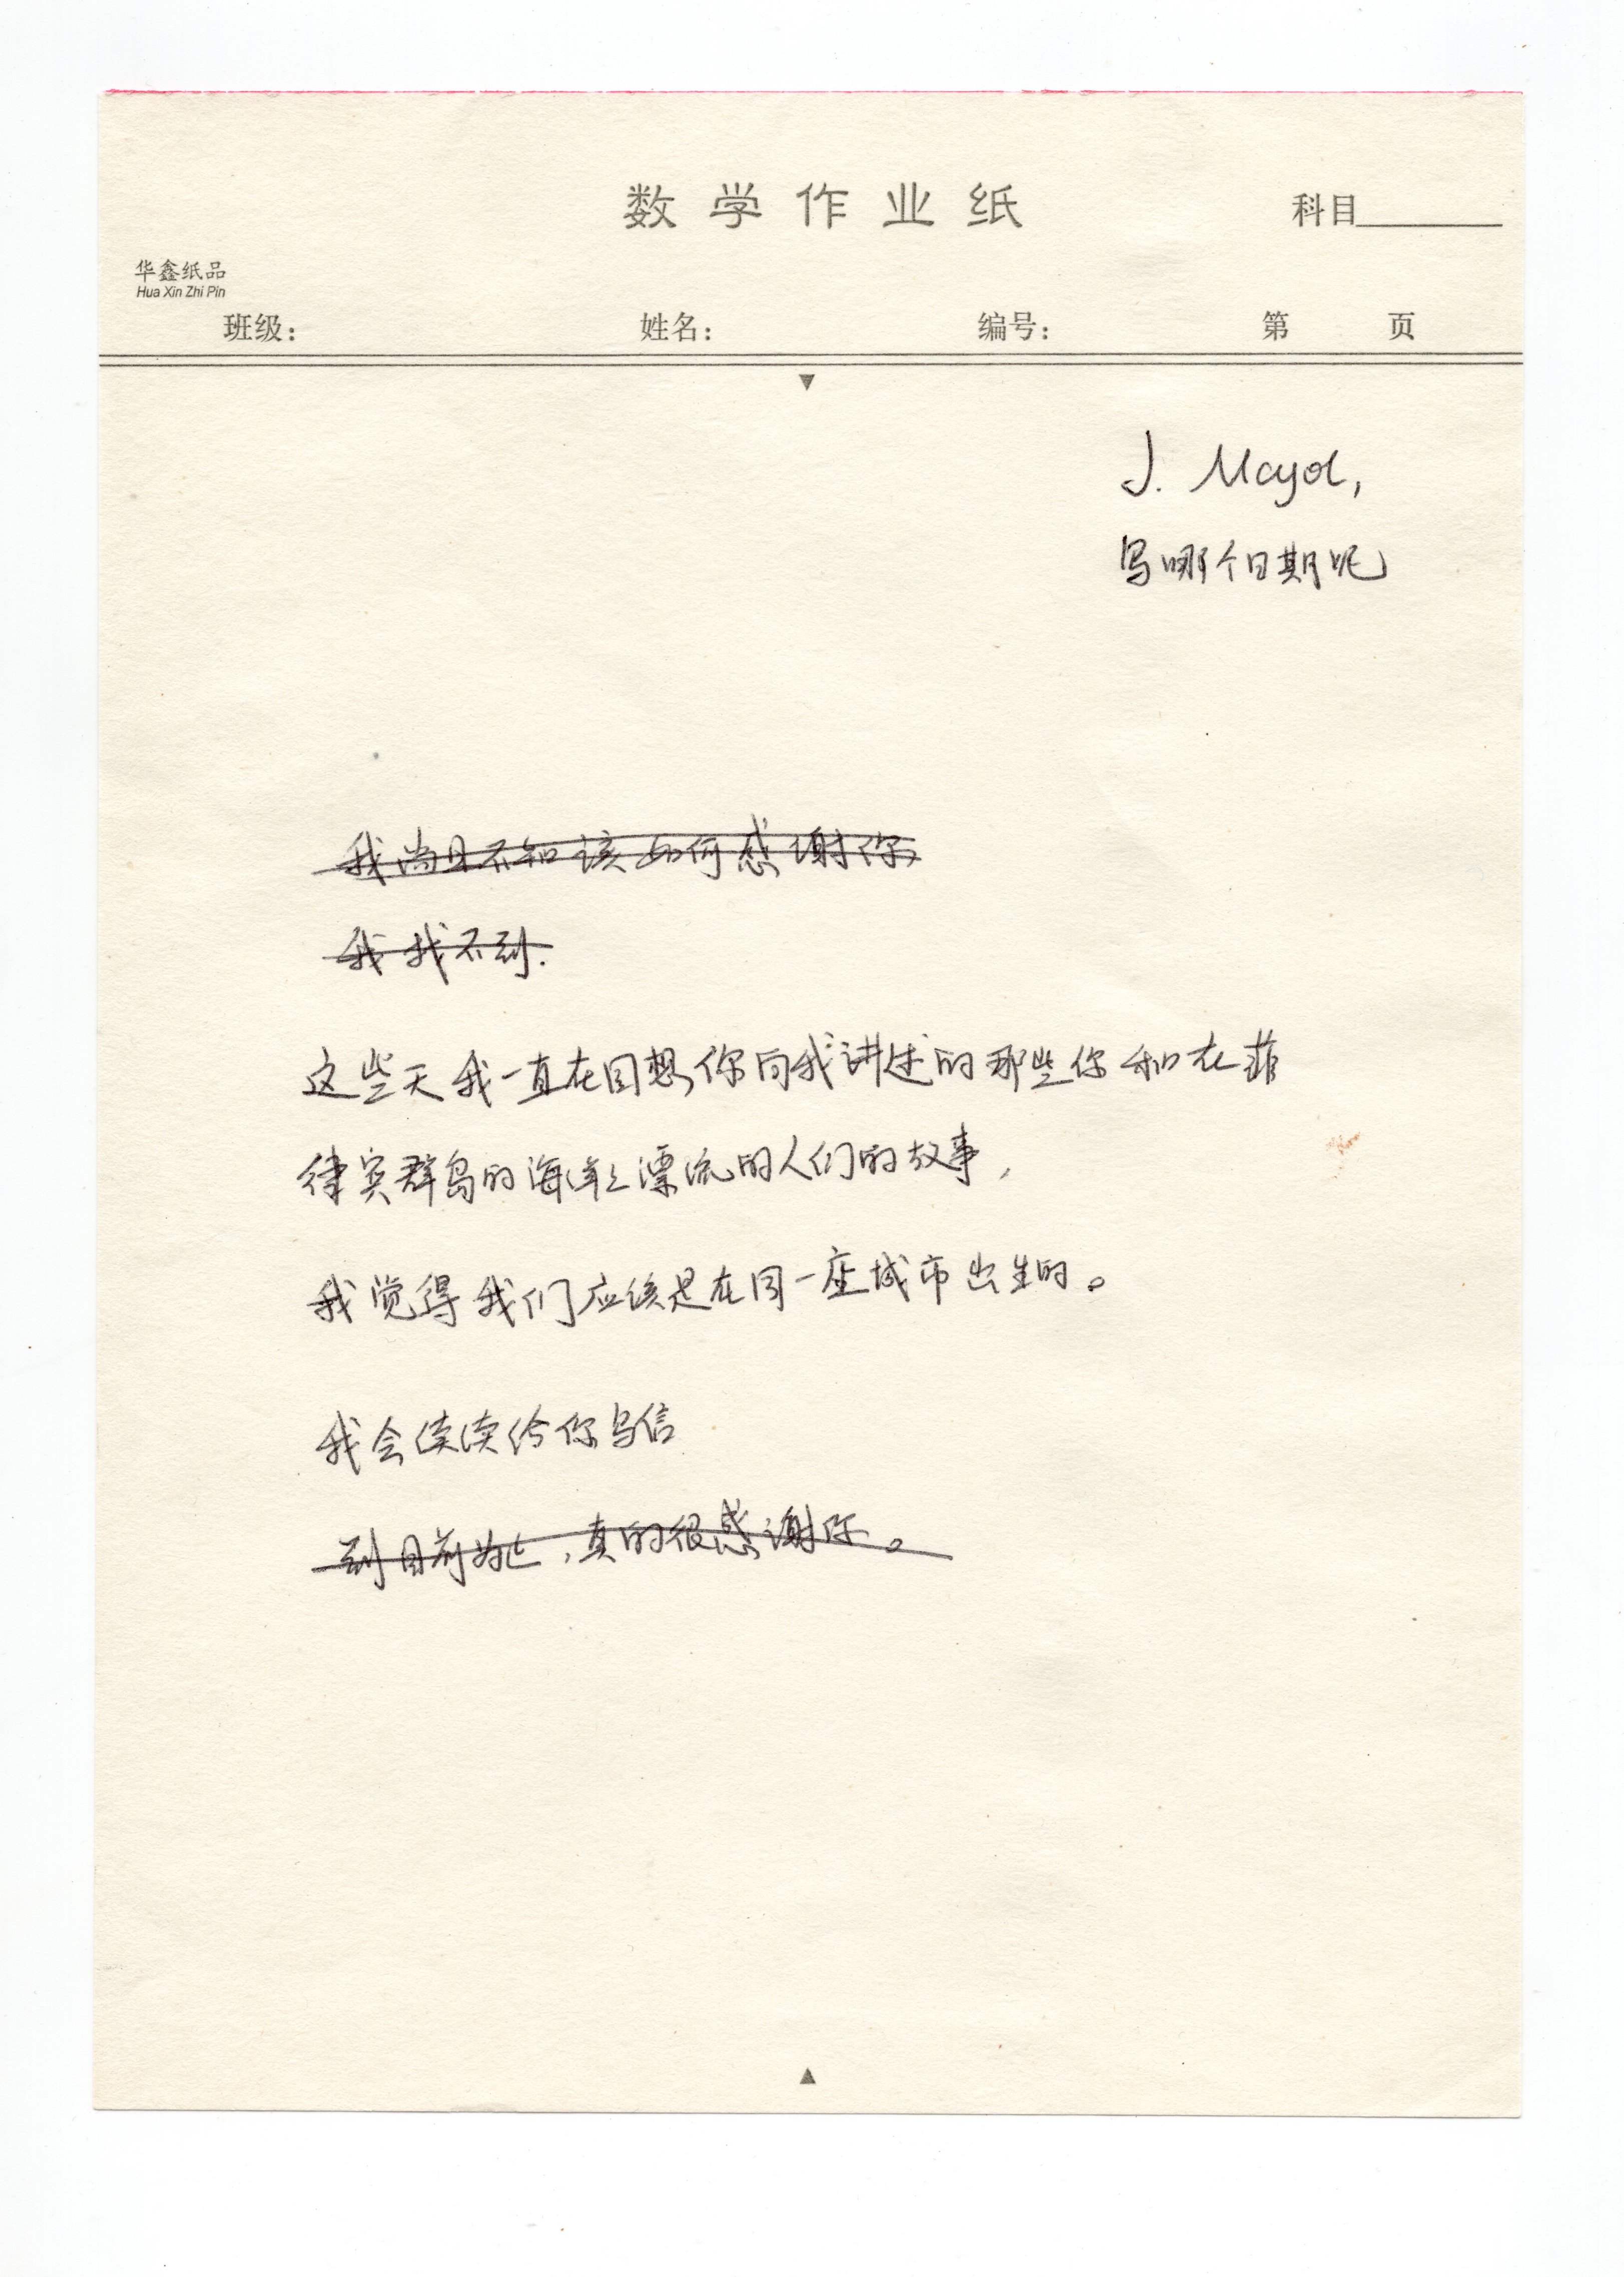 数学作业纸
科目
华鑫纸品
Hua Xin Zhi Pin
班级：
姓名：
编号：
第 页
J. Mayol,
写哪个日期呢
我尚且不知该如何感谢你
我找不到.
这些天我一直在回想你向我讲述的那些你和在菲
律宾群岛的海洋上漂流的人们的故事,
我觉得我们应该是在同一座城市出生的。
我会续续给你写信
到目前为止,真的很感谢你。